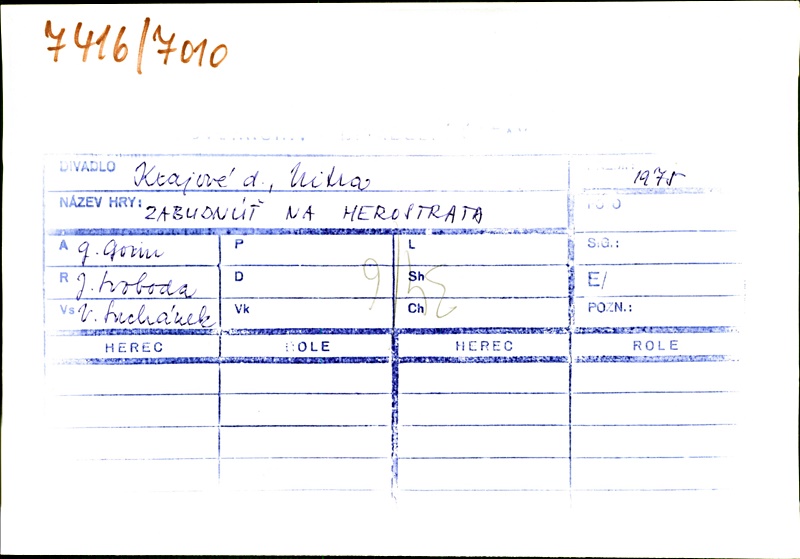 7416/7010
DIVADLO Krajové d., Nitra 1975
NÁZEV HRY: ZABUDNÚŤ NA HEROSTRATA
A g. Gorin P L S.G.:
R J. Svoboda D Sh E/
Vs V. Suchánek Vk Ch POZN.:
HEREC ROLE HEREC ROLE